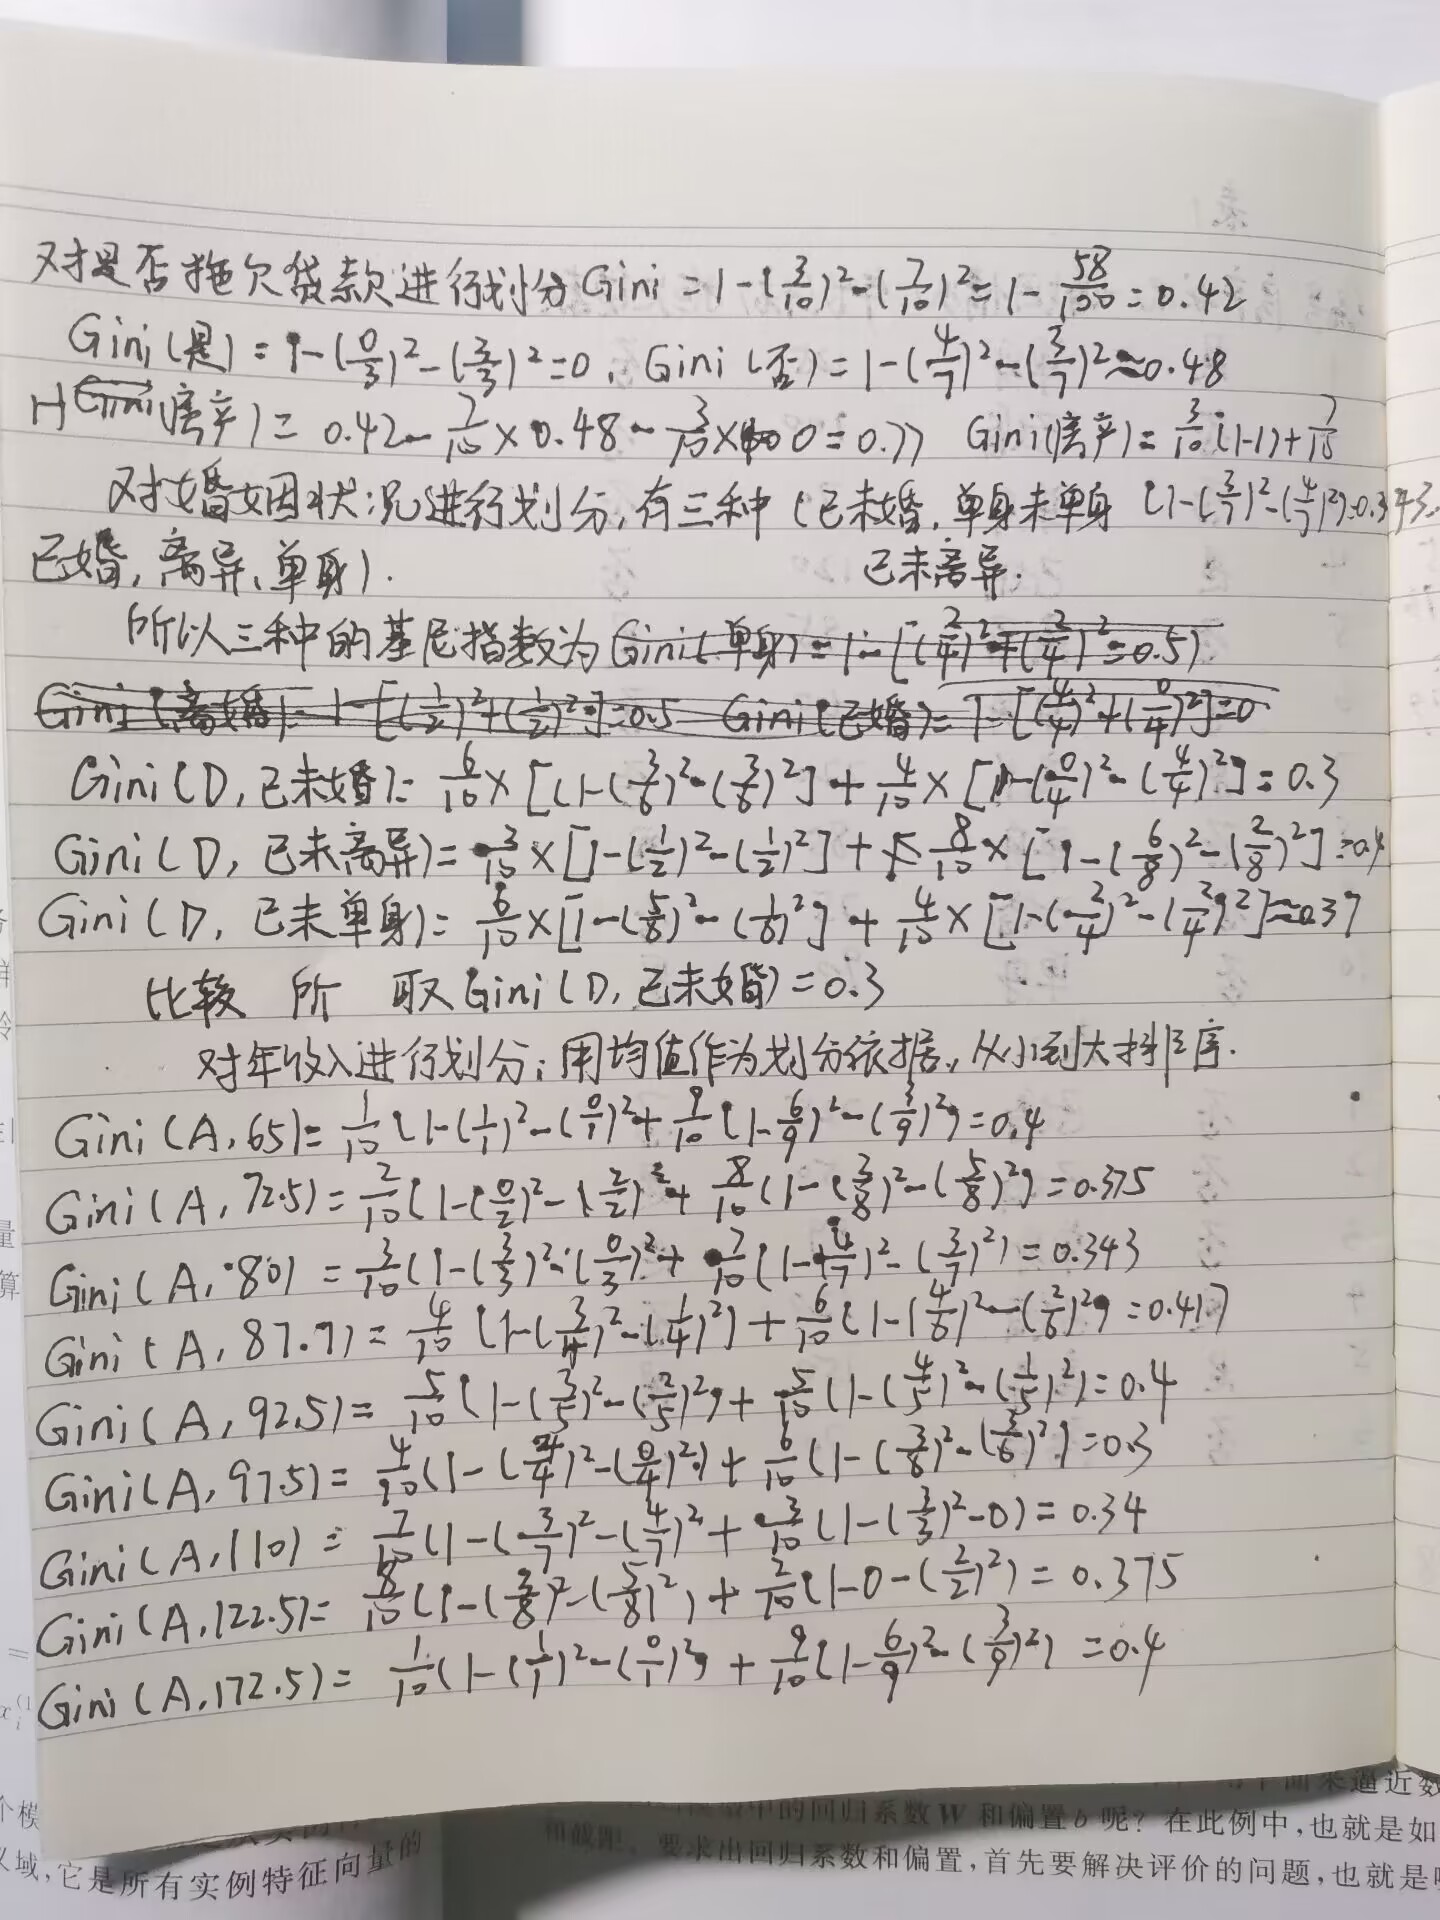 对是否拖欠贷款进行划分 Gini = 1-(3/10)²-(7/10)² = 1-58/100 = 0.42
Gini(是) = 1-(0/3)²-(3/3)²=0, Gini(否)=1-(4/7)²-(3/7)²≈0.48
0.42-7/10×0.48-3/10×0=0.77 Gini(房产)=3/10(1-1)+7/10
对婚姻状况进行划分,有三种(已未婚,单身未单身 (1-(3/7)²-(4/7)²)=0.343.
已婚,离异,单身). 已未离异.
所以三种的基尼指数为Gini(单身)=1-[(2/4)²+(2/4)²=0.5)
Gini(离婚)=1-[(1/2)²+(1/2)²]=0.5 Gini(已婚)=1-[(4/4)²+(0/4)²]=0
Gini(D,已未婚)=6/10×[(1-(3/6)²-(3/6)²]+4/10×[1-(0/4)²-(4/4)²]=0.3
Gini(D,已未离异)=×[1-(1/2)²-(1/2)²]+8/10×[1-(6/8)²-(2/8)²]=0.4
Gini(D,已未单身)=6/10×[1-(5/6)²-(1/6)²]+4/10×[1-(2/4)²-(2/4)²]≈0.37
比较 所 取Gini(D,已未婚)=0.3
对年收入进行划分;用均值作为划分依据,从小到大排序.
Gini(A,65)=1/10(1-(1/1)²-(0/1)²+9/10(1-6/9)²-(3/9)²)=0.4
Gini(A,72.5)=2/10(1-(0/2)²-(2/2)²+8/10(1-(3/8)²-(5/8)²)=0.375
Gini(A,80)=3/10(1-(3/3)²-(0/3)²+7/10(1-(4/7)²-(3/7)²)=0.343
Gini(A,87.7)=4/10(1-(3/4)²-(1/4)²)+6/10(1-(4/6)²-(2/6)²)=0.417
Gini(A,92.5)=5/10(1-(3/5)²-(2/5)²)+5/10(1-(4/5)²-(1/5)²)=0.4
Gini(A,97.5)=4/10(1-(4/4)²-(0/4)²)+6/10(1-(3/6)²-(3/6)²)=0.3
Gini(A,110)=7/10(1-(3/7)²-(4/7)²+3/10(1-(3/3)²-0)=0.34
Gini(A,122.5)=8/10(1-(3/8)²-(5/8)²)+2/10(1-0-(2/2)²)=0.375
Gini(A,172.5)=1/10(1-(1/1)²-(0/1)²)+9/10(1-6/9)²-(3/9)²)=0.4
来逼近数
中的回归系数W和偏置b呢?在此例中,也就是如
要求出回归系数和偏置,首先要解决评价的问题,也就是
个模
义域,它是所有实例特征向量的